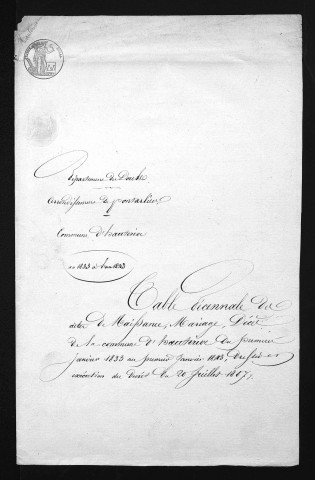 Département du Doubs
Arrondissement de Pontarlier
Commune d'hauterive
1833 à 1843
Table Décennale des
actes de Naissance, Mariage, Décès
de la commune d'hauterive du premier
janvier 1833 au premier janvier 1843, dressée en
exécution du Décret du 20 Juillet 1807,